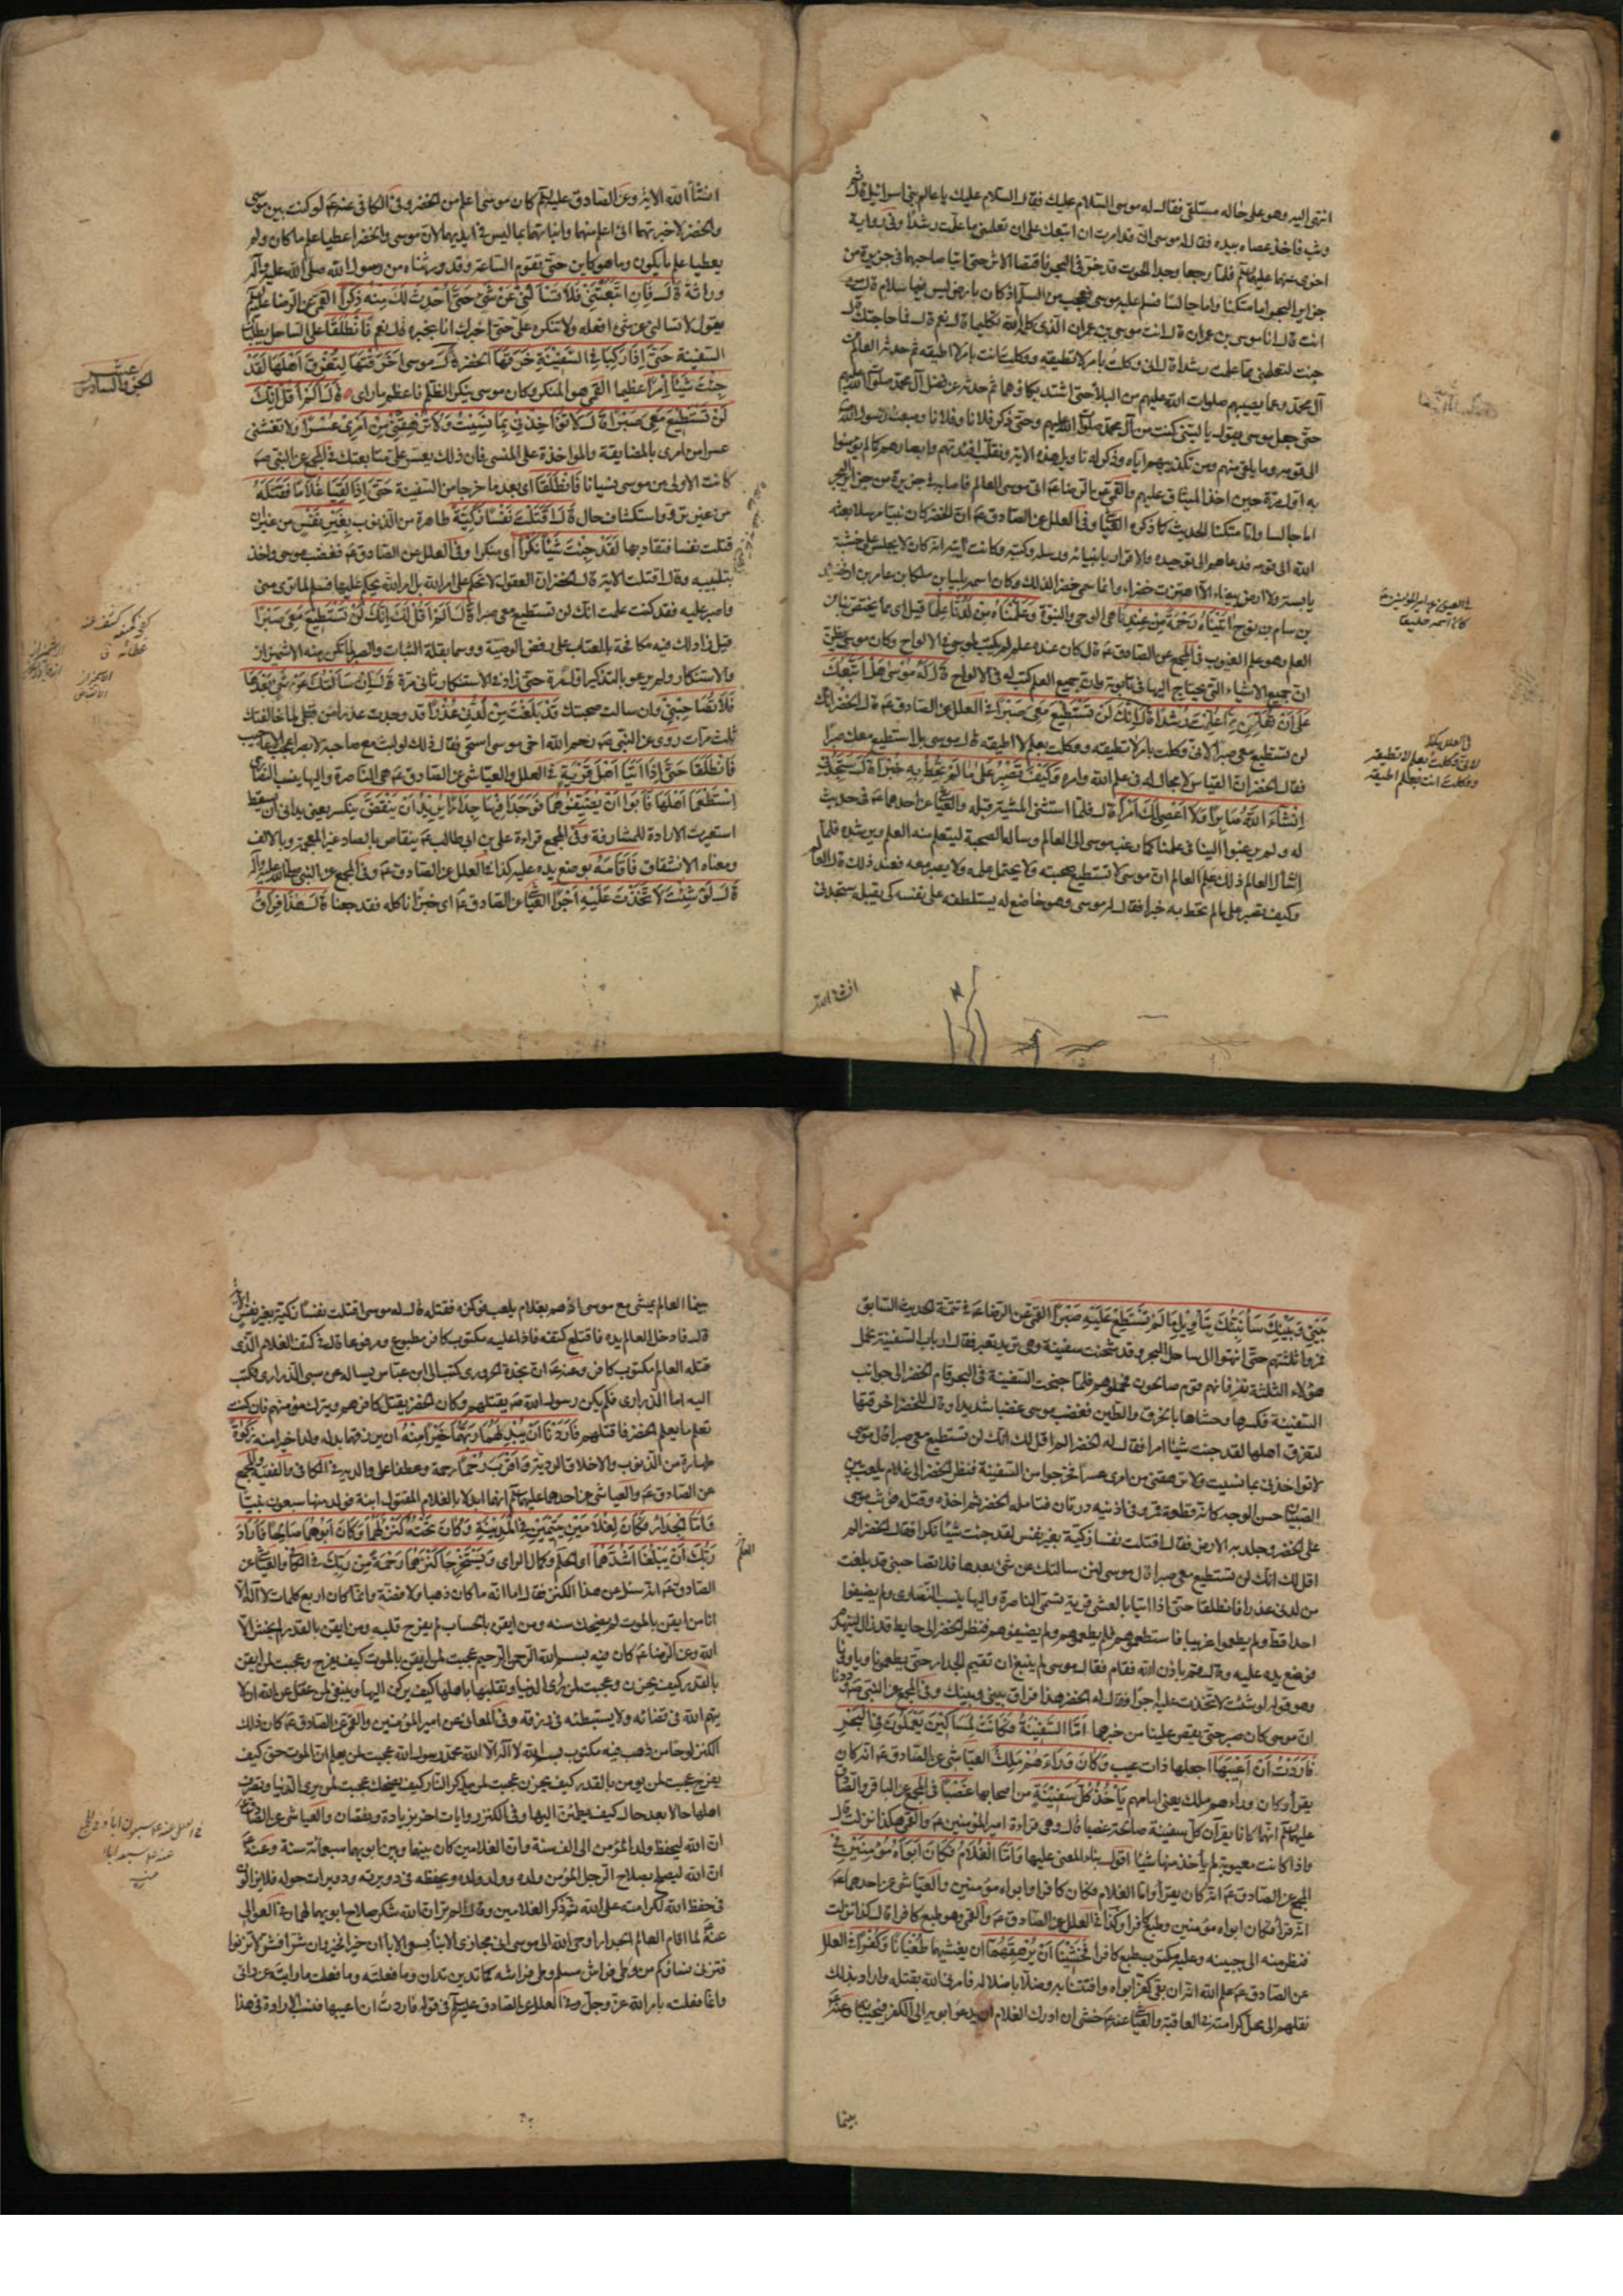 انتهى اليه وهو على حاله مستلقى فقال له موسى السلام عليك فقال السلام عليك يا عالم بنى اسرائيل قال ثم
وثب فاخذ عصاه بيده فقال له موسى انى قد امرت ان اتبعك على ان تعلمنى مما علمت رشدا وفى رواية
اخرى عنهما عليهما السلم فلما رجعا وجدا الحوت قد خر فى البحر فاقتصا الاثر حتى اتيا صاحبهما فى جزيرة من
جزاير البحر اما متكئا واما جالسا فسلم عليه موسى فعجب من السلام اذ كان بارض ليس فيها سلام قال من
انت قال انا موسى بن عمران قال انت موسى بن عمران الذى كلمه الله تكليما قال نعم قال فما حاجتك قال
جئت لتعلمنى مما علمت رشدا قال انى وكلت بامر لا تطيقه ووكلت انت بامر لا اطيقه ثم حدثه العالم
آل محمد وعما يصيبهم صلوات الله عليهم من البلاء حتى اشتد بكاؤهما ثم حدثه عن فضل آل محمد صلوات الله عليهم
حتى جعل موسى يقول يا ليتنى كنت من آل محمد صلوات الله عليهم وحتى ذكر فلانا وفلانا ومبعث رسول الله
الى قومه وما يلقى منهم ومن تكذيبهم اياه وذكر له تاويل هذه الاية ونقلب افئدتهم وابصارهم كما لم يؤمنوا
به اول مرة حين اخذ الميثاق عليهم والقمى عن الرضا عم اتى موسى العالم فاصابه فى جزيرة من جزاير البحر
اما جالسا واما متكئا الحديث كما ذكره العياشى وفى العلل عن الصادق عم ان الخضر كان نبيا مرسلا بعثه
الله الى قومه فدعاهم الى توحيده والاقرار بانبيائه ورسله وكتبه وكانت آيته انه كان لا يجلس على خشبة
يابسة ولا ارض بيضاء الا اهتزت خضراء وانما سمى خضرا لذلك وكان اسمه بليا بن ملكا بن عامر بن ارفخشد
بن سام بن نوح اتيناه رحمة من عندنا هى الوحى والنبوة وعلمناه من لدنا علما قيل اى مما يختص بنا من
العلم وهو علم الغيوب فى المجمع عن الصادق عم قال كان عنده علم لم يكتب لموسى فى الالواح وكان موسى يظن
ان جميع الاشياء التى يحتاج اليها فى تابوته وان جميع العلم كتب له فى الالواح قال له موسى هل اتبعك
على ان تعلمن مما علمت رشدا قال انك لن تستطيع معى صبرا فى العلل عن الصادق عم قال الخضر انك
لن تستطيع معى صبرا لانى وكلت بامر لا تطيقه ووكلت بعلم لا اطيقه قال موسى بل استطيع معك صبرا
فقال الخضر ان القياس لا مجال له فى علم الله وامره وكيف تصبر على ما لم تحط به خبرا قال ستجدنى
انشاء الله صابرا ولا اعصى لك امرا قال فلما استثنى المشية قبله والعياشى عن احدهما عم فى حديث
له ولم يرغبوا الينا فى علمنا كما رغب موسى الى العالم وساله الصحبة ليتعلم منه العلم ويرشده فلما
ان سال العالم ذلك علم العالم ان موسى لا تستطيع صحبته ولا يحتمل علمه ولا يصبر معه فعند ذلك قال العالم
وكيف تصبر على ما لم تحط به خبرا فقال له موسى وهو خاضع له يستلطفه على نفسه كى يقبله ستجدنى
انشاء الله
فى العلل هكذا
لانى وكلت بعلم لا تطيقه
ووكلت انت بعلم لا اطيقه
انشاء الله الاية وعن الصادق عليه السلم كان موسى اعلم من الخضر وفى الكافى عنه عم لو كنت بين موسى
والخضر لاخبرتهما انى اعلم منهما وانباتهما بما ليس فى ايديهما لان موسى والخضر اعطيا علم ما كان ولم
يعطيا علم ما يكون وما هو كاين حتى تقوم الساعة وقد ورثناه من رسول الله صلى الله عليه وآله
وراثة قال فان اتبعتنى فلا تسالنى عن شئ حتى احدث لك منه ذكرا القمى عن الرضا عليه السلم
يقول لا تسالنى عن شئ افعله ولا تنكره على حتى اخبرك انا بخبره قال نعم فانطلقا على الساحل يطلبان
السفينة حتى اذا ركبا فى السفينة خرقها الخضر قال موسى اخرقتها لتغرق اهلها لقد
جئت شيئا امرا عظيما القمى هو المنكر وكان موسى ينكر الظلم فاعظم ما راى قال الم اقل انك
لن تستطيع معى صبرا قال لا تؤاخذنى بما نسيت ولا ترهقنى من امرى عسرا ولا تغشنى
عسرا من امرى بالمضايقة والمؤاخذة على المنسى فان ذلك يعسر على متابعتك فى المجمع عن النبى صم
كانت الاولى من موسى نسيانا فانطلقا اى بعد ما خرجا من السفينة حتى اذا لقيا غلاما فقتله
من غير ترو واستكشاف حال قال اقتلت نفسا زكية طاهرة من الذنوب بغير نفس من غير ان
قتلت نفسا فتقاد بها لقد جئت شيئا نكرا اى منكرا وفى العلل عن الصادق عم فغضب موسى واخذ
بتلبيبه وقال اقتلت الاية قال الخضر ان العقول لا تحكم على امر الله بل امر الله يحكم عليها فسلم لما ترى منى
واصبر عليه فقد كنت علمت انك لن تستطيع معى صبرا قال الم اقل لك انك لن تستطيع معى صبرا
قيل زاد لك فيه مكافحة بالعتاب على رفض الوصية ووسما بقلة الثبات والصبر لما تكرر منه الاشمئزاز
والاستنكار ولم يرعو بالتذكير اول مرة حتى زاد فى الاستنكار ثانى مرة قال ان سالتك عن شئ بعدها
فلا تصاحبنى وان سالت صحبتك قد بلغت من لدنى عذرا قد وجدت عذرا من قبلى لما خالفتك
ثلث مرات روى عن النبى صم رحم الله اخى موسى استحيى فقال ذلك لو لبث مع صاحبه لابصر اعجب الاعاجيب
فانطلقا حتى اذا اتيا اهل قرية فى العلل والعياشى عن الصادق عم هى الناصرة واليها ينسب النصارى
استطعما اهلها فابوا ان يضيفوهما فوجدا فيها جدارا يريد ان ينقض ينكسر يعنى يدانى ان يسقط
استعيرت الارادة للمشارفة وفى المجمع قراءة على بن ابيطالب عم ينقاص بالصاد غير المعجمة وبالالف
ومعناه الانشقاق فاقامه بوضع يده عليه كذا فى العلل عن الصادق عم وفى المجمع عن النبى صلى الله عليه وآله
قال لو شئت لاتخذت عليه اجرا العياشى عن الصادق عم اى خبزا ناكله فقد جعنا قال هذا فراق
بينى وبينك سانبئك بتاويل ما لم تستطع عليه صبرا القمى عن الرضا عم فى تتمة الحديث السابق
فمروا ثلثتهم حتى انتهوا الى ساحل البحر وقد شحنت سفينة وهى تريد تعبر فقال ارباب السفينة نحمل
هؤلاء الثلثة نفر فانهم قوم صالحون فحملوهم فلما جنحت السفينة فى البحر قام الخضر الى جوانب
السفينة فكسرها وحشاها بالخرق والطين فغضب موسى غضبا شديدا وقال للخضر اخرقتها
لتغرق اهلها لقد جئت شيئا امرا فقال له الخضر الم اقل لك انك لن تستطيع معى صبرا قال موسى
لا تؤاخذنى بما نسيت ولا ترهقنى من امرى عسرا فخرجوا من السفينة فنظر الخضر الى غلام يلعب بين
الصبيان حسن الوجه كانه قطعة قمر وفى اذنيه درتان فتامله الخضر ثم اخذه وقتله فوثب موسى
على الخضر وجلد به الارض فقال اقتلت نفسا زكية بغير نفس لقد جئت شيئا نكرا فقال الخضر الم
اقل لك انك لن تستطيع معى صبرا قال موسى لئن سالتك عن شئ بعدها فلا تصاحبنى قد بلغت
من لدنى عذرا فانطلقا حتى اذا اتيا بالعشى قرية تسمى الناصرة واليها ينسب النصارى ولم يضيفوا
احدا قط ولم يطعموا غريبا فاستطعموهم فلم يطعموهم ولم يضيفوهم فنظر الخضر الى حايط قد زال لينهدم
فوضع يده عليه وقال قم باذن الله فقام فقال موسى لم ينبغ ان تقيم الجدار حتى يطعمونا ويأوونا
وهو قوله لو شئت لاتخذت عليه اجرا فقال له الخضر هذا فراق بينى وبينك وفى المجمع عن النبى صم وددنا
ان موسى كان صبر حتى يقص علينا من خبرهما اما السفينة فكانت لمساكين يعملون فى البحر
فاردت ان اعيبها اجعلها ذات عيب وكان وراءهم ملك العياشى عن الصادق عم انه كان
يقرأ وكان وراءهم ملك يعنى امامهم ياخذ كل سفينة من اصحابها غصبا فى المجمع عن الباقر والصادق
عليهما السلم انهما كانا يقرآن كل سفينة صالحة غصبا قال وهى قراءة امير المؤمنين عم والقمى هكذا نزلت قال
واذا كانت معيوبة لم ياخذ منها شيئا اقول بناء المعنى عليها واما الغلام فكان ابواه مؤمنين فى
المجمع عن الصادق عم انه كان يقرأ واما الغلام فكان كافرا وابواه مؤمنين والعياشى عن احدهما عم
انه قرأ فكان ابواه مؤمنين وطبع كافرا وكذا فى العلل عن الصادق عم والقمى وهو طبع كافرا قال كذا نزلت
فنظر منه الى جبينه وعليه مكتوب طبع كافرا فخشينا ان يرهقهما ان يغشيهما طغيانا وكفرا فى العلل
عن الصادق عم علم الله انه ان بقى كفر ابواه وافتتنا به وضلا باضلاله فامرنى الله بقتله واراد بذلك
نقلهم الى محل كرامته فى العاقبة والعياشى عنه عم خشى ان ادرك الغلام ان يدعو ابويه الى الكفر فيجيبانه وعنه عم
بينما
بينما العالم يمشى مع موسى اذ هم بغلام يلعب فوكزه فقتله قال له موسى اقتلت نفسا زكية بغير نفس
قال فادخل العالم يده فاقتلع كتفه فاذا عليه مكتوب كافر مطبوع ومرفوعا قلب كتف الغلام الذى
قتله العالم مكتوب كافر وعنه عم ان نجدة الحرورى كتب الى ابن عباس يساله عن سبى الذرارى فكتب
اليه اما الذرارى فلم يكن رسول الله صم يقتلهم وكان الخضر يقتل كافرهم ويترك مؤمنهم فان كنت
تعلم ما يعلم الخضر فاقتلهم فاردنا ان يبدلهما ربهما خيرا منه ان يرزقهما بدله ولدا خيرا منه زكوة
طهارة من الذنوب والاخلاق الردية واقرب رحما رحمة وعطفا على والديه فى الكافى والفقيه والمجمع
عن الصادق عم والعياشى عن احدهما عليهما السلم انهما ابدلا بالغلام المقتول ابنة فولد منها سبعون نبيا
واما الجدار فكان لغلامين يتيمين فى المدينة وكان تحته كنز لهما وكان ابوهما صالحا فاراد
ربك ان يبلغا اشدهما اى الحلم وكمال الراى ويستخرجا كنزهما رحمة من ربك فى الكافى والعياشى عن
الصادق عم انه سئل عن هذا الكنز فقال اما انه ما كان ذهبا ولا فضة وانما كان اربع كلمات لا اله الا
انا من ايقن بالموت لم يضحك سنه ومن ايقن بالحساب لم يفرح قلبه ومن ايقن بالقدر لم يخش الا
الله وعن الرضا عم كان فيه بسم الله الرحمن الرحيم عجبت لمن ايقن بالموت كيف يفرح وعجبت لمن ايقن
بالقدر كيف يحزن وعجبت لمن راى الدنيا وتقلبها باهلها كيف يركن اليها وينبغى لمن عقل عن الله ان لا
يتهم الله فى قضائه ولا يستبطئه فى رزقه وفى المعانى عن امير المؤمنين والقمى عن الصادق عم كان ذلك
الكنز لوحا من ذهب فيه مكتوب بسم الله لا اله الا الله محمد رسول الله عجبت لمن يعلم ان الموت حق كيف
يفرح عجبت لمن يومن بالقدر كيف يحزن عجبت لمن يذكر النار كيف يضحك عجبت لمن يرى الدنيا وتصرف
اهلها حالا بعد حال كيف يطمئن اليها وفى الكنز روايات اخر بزيادة ونقصان والعياشى عن الصادق عم
ان الله ليحفظ ولد المؤمن الى الف سنة وان الغلامين كان بينهما وبين ابويهما سبعمائة سنة وعنه عم
ان الله ليصلح بصلاح الرجل المؤمن ولده وولد ولده ويحفظه فى دويرته ودويرات حوله فلا يزالون
فى حفظ الله لكرامته على الله ثم ذكر الغلامين وقال الم تر ان الله شكر صلاح ابويهما لهما فى العوالى
عنه عم لما اقام العالم الجدار اوحى الله الى موسى انى مجازى الابناء بسعى الاباء ان خيرا فخير وان شرا فشر لا تزنوا
فتزنى نساؤكم من وطى فراش مسلم وطى فراشه كما تدين تدان وما فعلته وما فعلت ما رايته عن رائى
وانما فعلته بامر الله عز وجل وفى العلل عن الصادق عليه السلم فى قوله فاردت ان اعيبها فنسب الارادة فى هذا